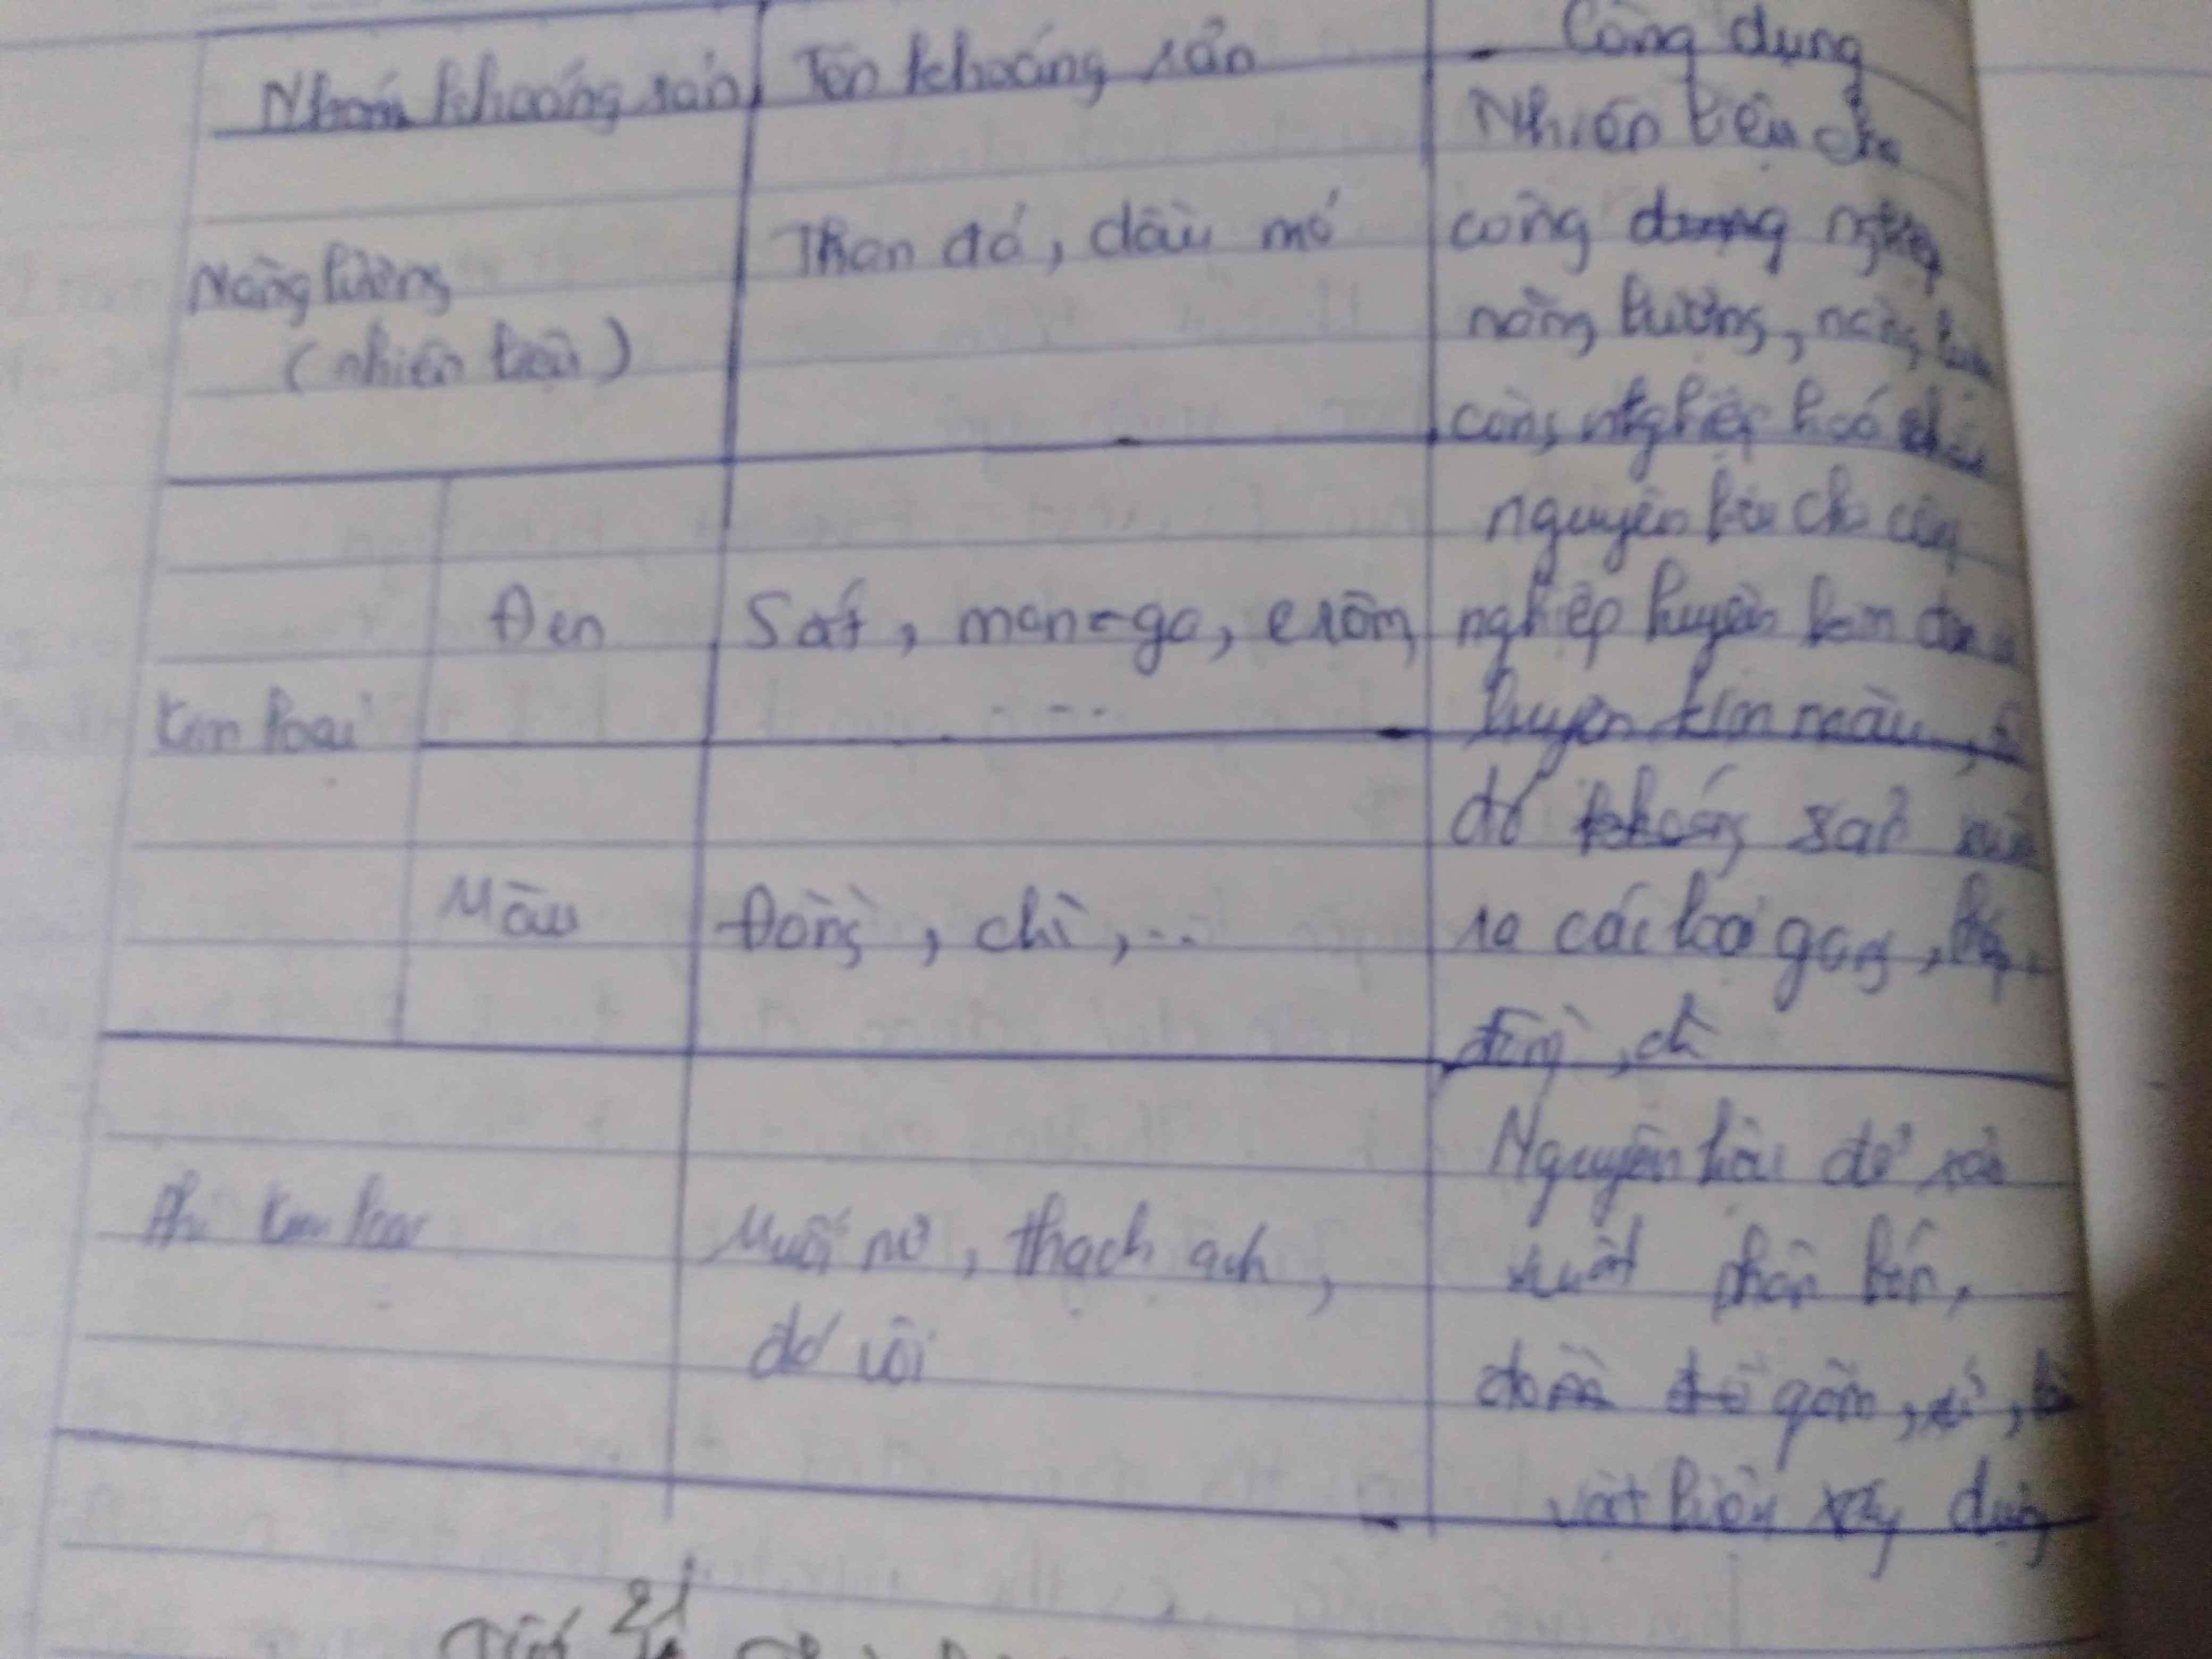 Nhóm khoáng sản Tên khoáng sản Công dụng
Năng lượng
(nhiên liệu)
Than đá, dầu mỏ
Nhiên liệu cho
công nghiệp
năng lượng, nặng
công nghiệp hoá
Kim loại
Đen
Sắt, man-ga, crôm
....
nguyên liệu cho công
nghiệp luyện kim đen
luyện kim màu,
đó sản xuất
ra các loại gang, thép
đồng, chì
Màu
Đồng, chì,...
Phi kim loại
Muối mỏ, thạch anh,
đá vôi
Nguyên liệu để sản
xuất phân bón,
gốm, sứ,
vật liệu xây dựng
Tiết 21